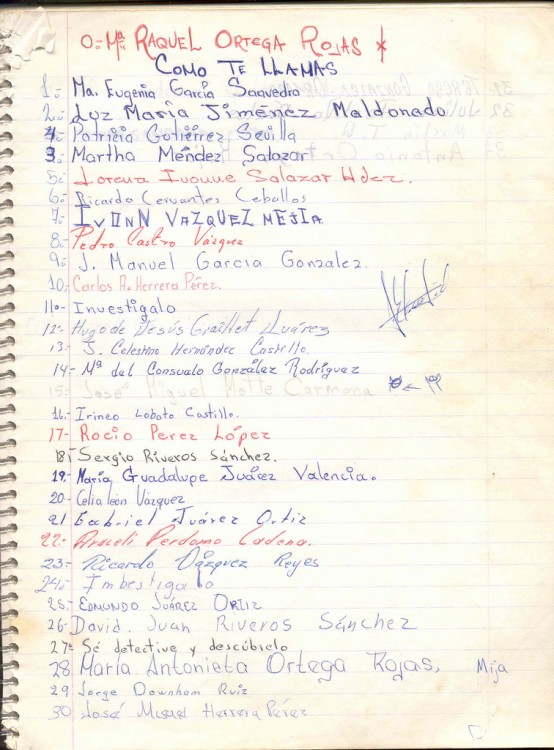 0.- Mª RAQUEL ORTEGA ROJAS
COMO TE LLAMAS
1.- Ma. Eugenia García Saavedra
2.- Luz María Jiménez Maldonado
4.- Patricia Gutiérrez Sevilla
3.- Martha Méndez Salazar
5.- Lorena Ivonne Salazar Hdez.
6.- Ricardo Cervantes Ceballos
7.- IVONN VAZQUEZ MEJIA
8.- Pedro Castro Vázquez
9.- J. Manuel Garcia Gonzalez.
10.- Carlos A. Herrera Pérez.
11.- Investigalo
12.- Hugo de Jesús Graillet Juárez
13.- J. Celestino Hernández Castillo.
14.- Mª del Consualo González Rodríguez
15.- José Miguel Motte Carmona
16.- Irineo Lobato Castillo.
17.- Rocio Perez López
18) Sergio Riveros Sánchez.
19.- María Guadalupe Juárez Valencia.
20.- Celia león Vázquez
21 Gabriel Juárez Ortiz
22.- Araceli Perdomo Cadena.
23.- Ricardo Vázquez Reyes
24.- Imbestigalo
25.- EDMUNDO JUÁREZ ORTIZ
26.- David. Juan Riveros Sánchez
27.- Sé detective y descúbielo
28 María Antonieta Ortega Rojas. Mija
29 Jorge Downham Ruiz
30 José Miguel Herrera Pérez